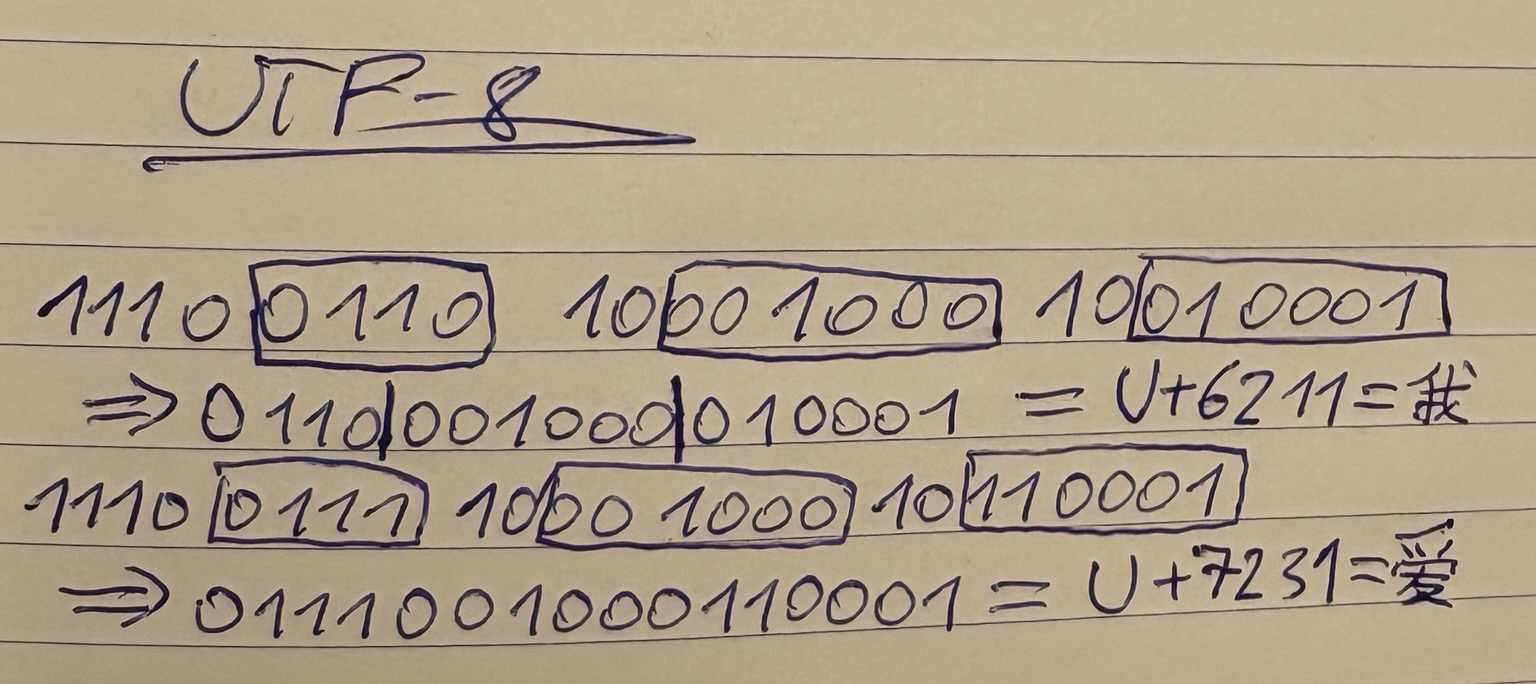 UTF-8
1110 0110 10 001000 10 010001
⇒ 0110|001000|010001 = U+6211=我
1110 0111 10 001000 10 110001
⇒ 0111001000110001 = U+7231=爱